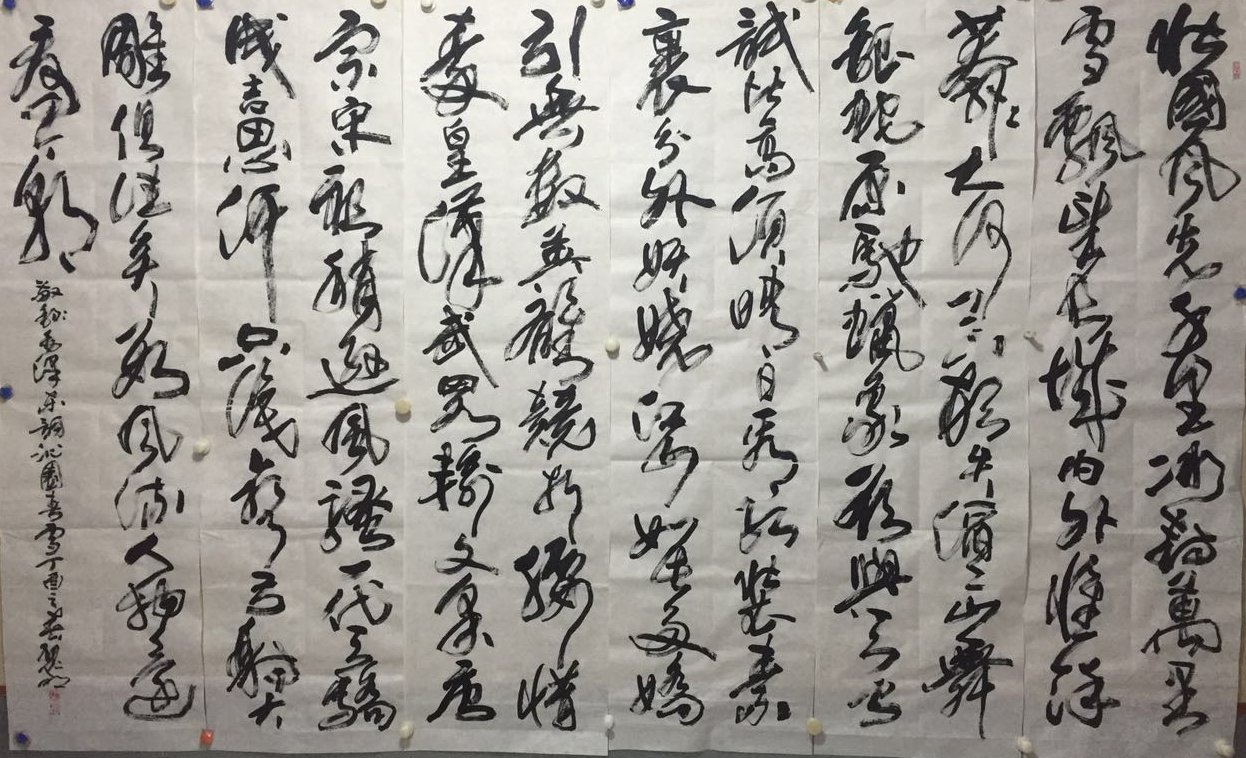 北國風光千里冰封萬里
雪飄望長城內外惟餘
莽々大河上下頓失滔々山舞
銀蛇原馳蠟象欲與天公
試比高須晴日看紅裝素
裹分外妖嬈江山如此多嬌
引無數英雄競折腰惜
秦皇漢武略輸文采唐
宗宋祖稍遜風騷一代天驕
成吉思汗只識彎弓射大
雕俱往矣數風流人物還
看今朝
敬錄毛澤東詞沁園春雪丁酉之春